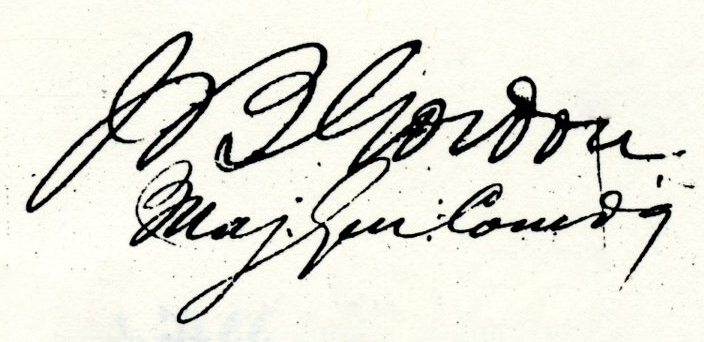 J B Gordon
Maj. Gen. Comdg